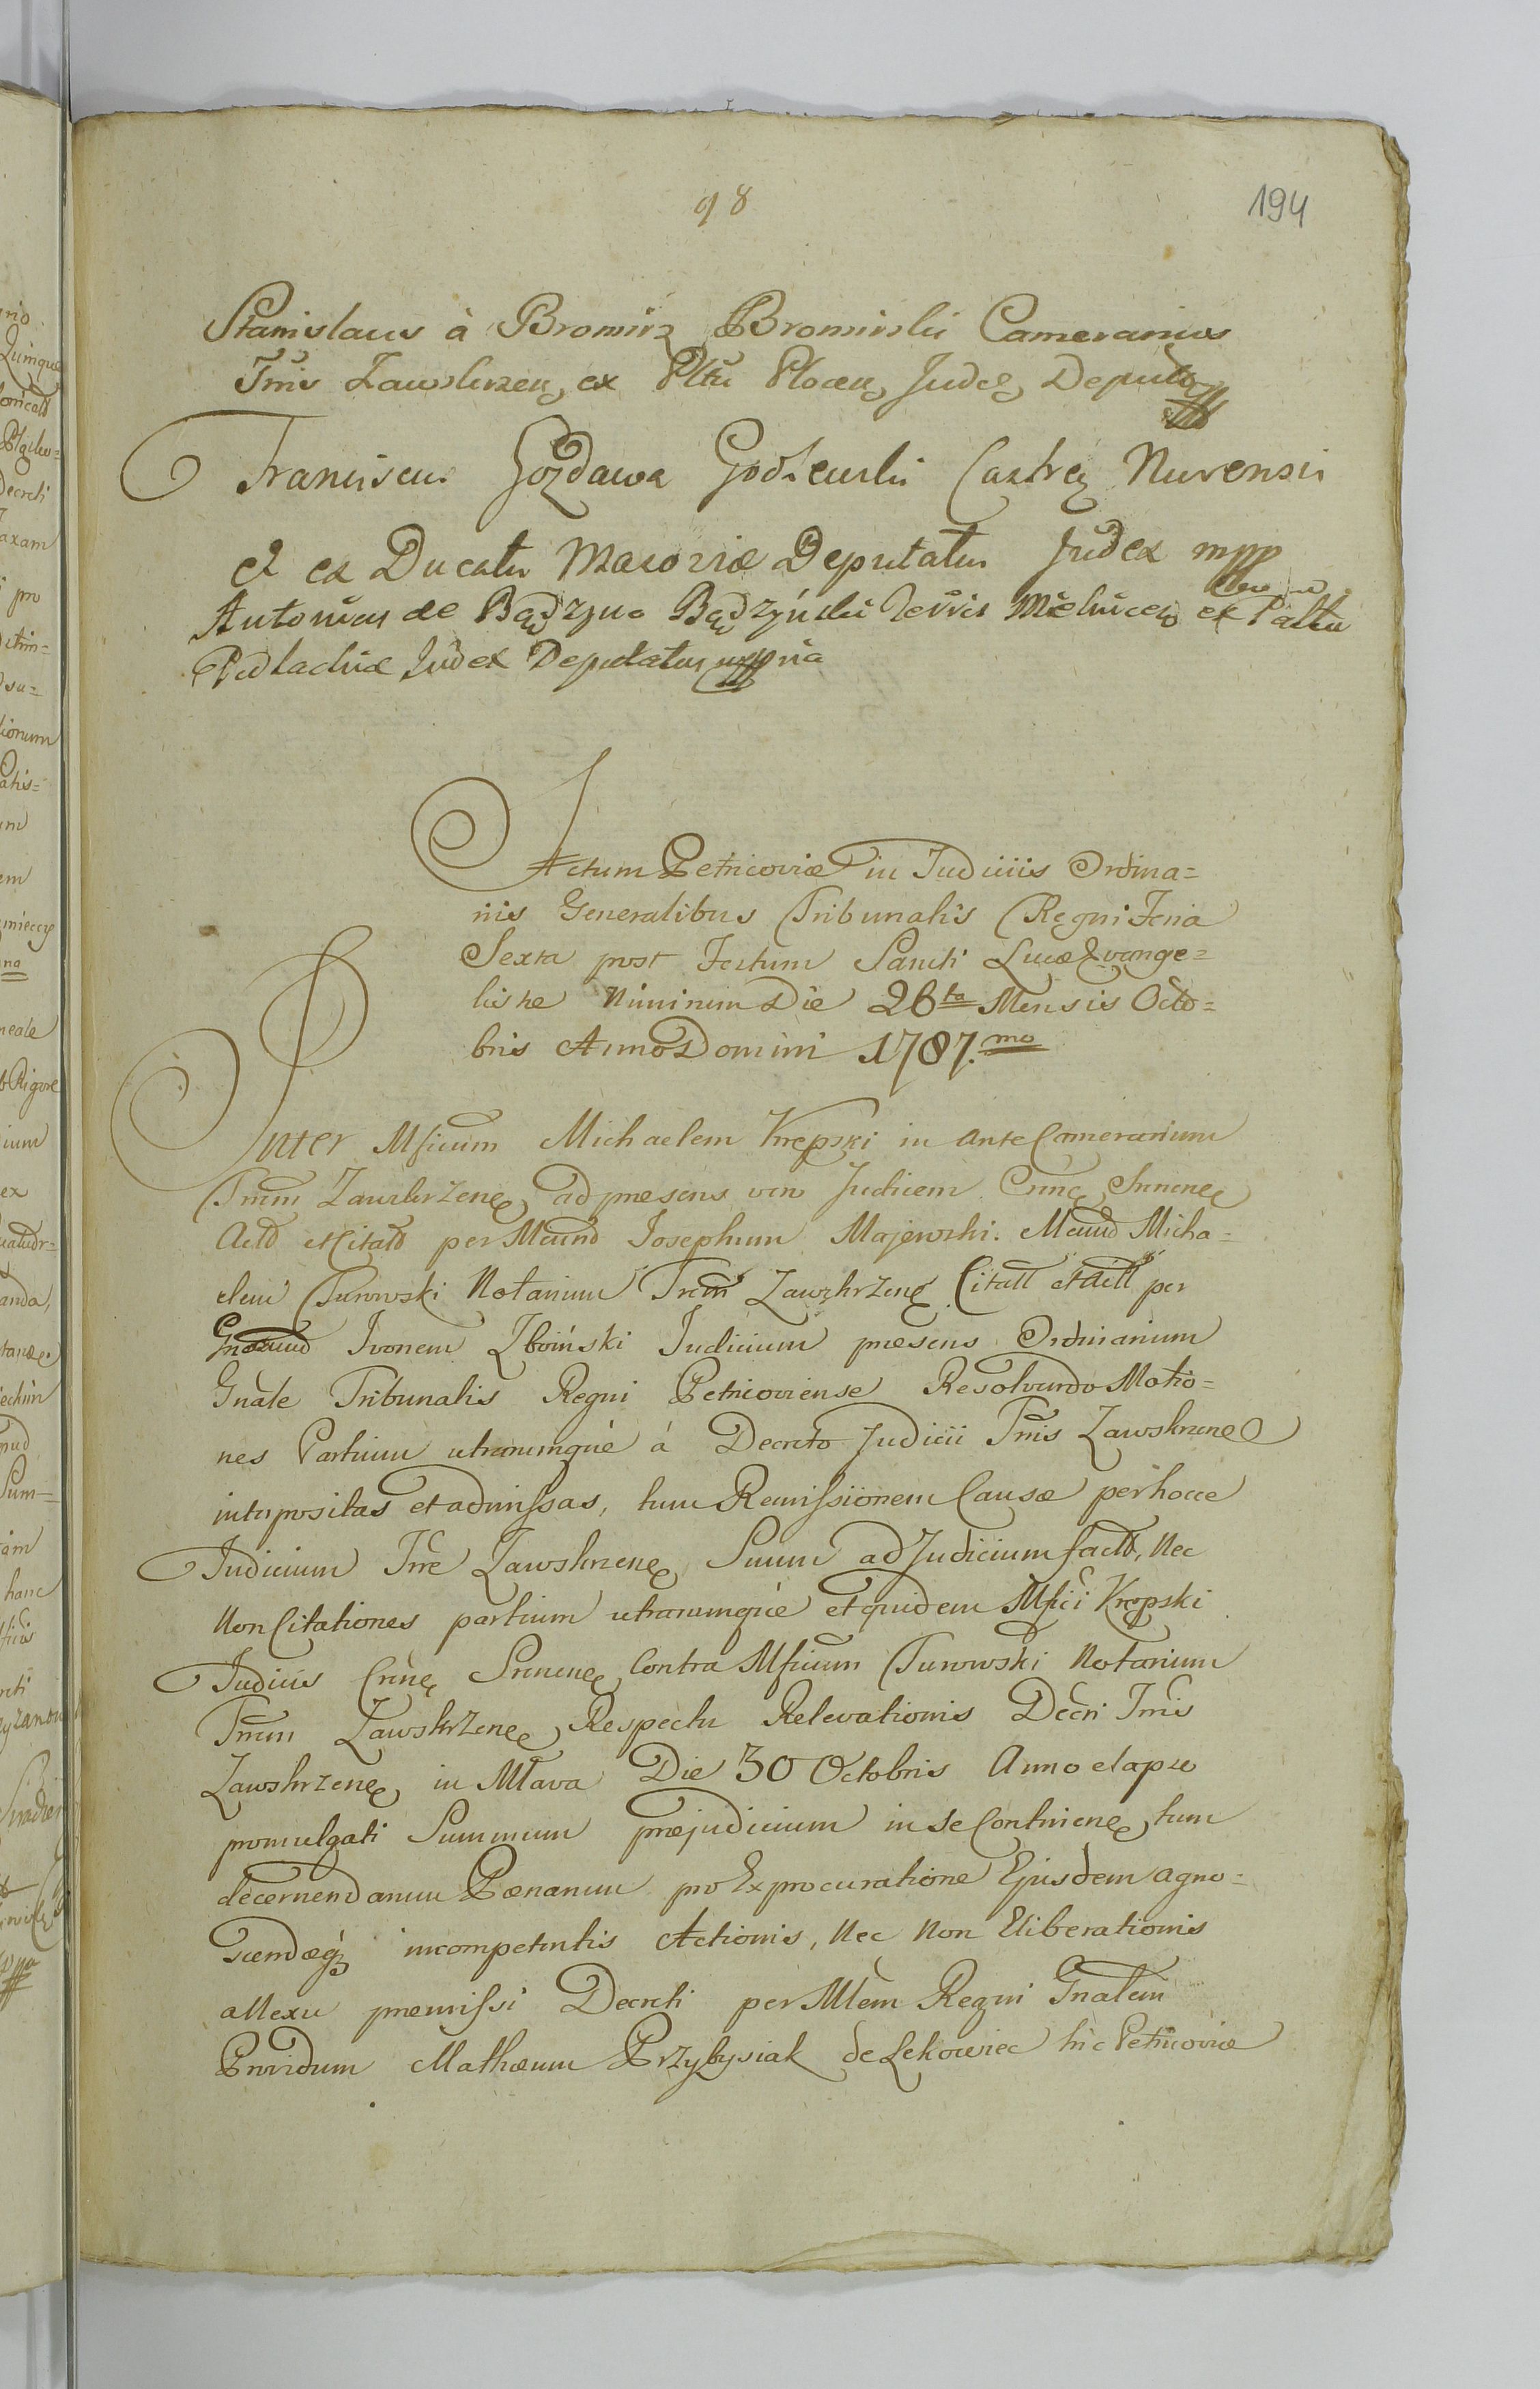 98
194
Stanislaus à Bromirz Bromirski Camerarius
Trris Zawskrzen, ex Pltu Plocen, Judex Deputat
Franciscus Gozdawa Godlewski Castren Nurensis
et ex Ducatu Masoviæ Deputatus Judex mpp
Antonius de Bądzyno Bądzyński Terris Mielnicen ex Palttu
Podlachiæ Judex Deputatus mppria
Actum Petricoviæ in Judiciis Ordina=
riis Generalibus Tribunalis Regni Feria
Sexta post Festum Sancti Lucæ Evange=
listæ Nimirum Die 26ta Mensis Octo=
bris Anno Domini 1787.mo
Inter Mficum Michaelem Krępski in ante Camerarium
Trrem Zawskrzenẹ, ad præsens vero Judicem
Actd et Citatd per Mcumd Josephum Majewski. Mcumd Micha=
elem Turowski Notarium Trrem Zawskrzenẹ Citatt et Actt per
Gnosumd Ivonem Zboiński Judicium præsens Ordinarium
Gnale Tribunalis Regni Petricoviense Resolvendo Motio=
nes Partium utrarumque à Decreto Judicii Trris Zawskrzenẹ
interpositas et admissas, tum Remissionem Causæ per hocce
Judicium Trre Zawskrzenẹ, Suum ad Judicium factd, Nec
Non Citationes partium utrarumque et quidem Mfici Krępski
Judicis contra Mficum Turowski Notarium
Trrem Zawskrzenẹ, Respectu Relevationis Decri Trris
Zawskrzenẹ, in Mława Die 30 Octobris Anno elapso
promulgati Summum præjudicium in se Continenẹ, tum
decernendarum Pœnarum pro Exprocuratione Ejusdem agno=
scendæq; incompetentis Actionis, Nec Non Eliberationis
a Nexu præmissi Decreti per Mlem Regni Gnalem
Providum Mathæum Przybysiak de Lekowiec hic Petricoviæ